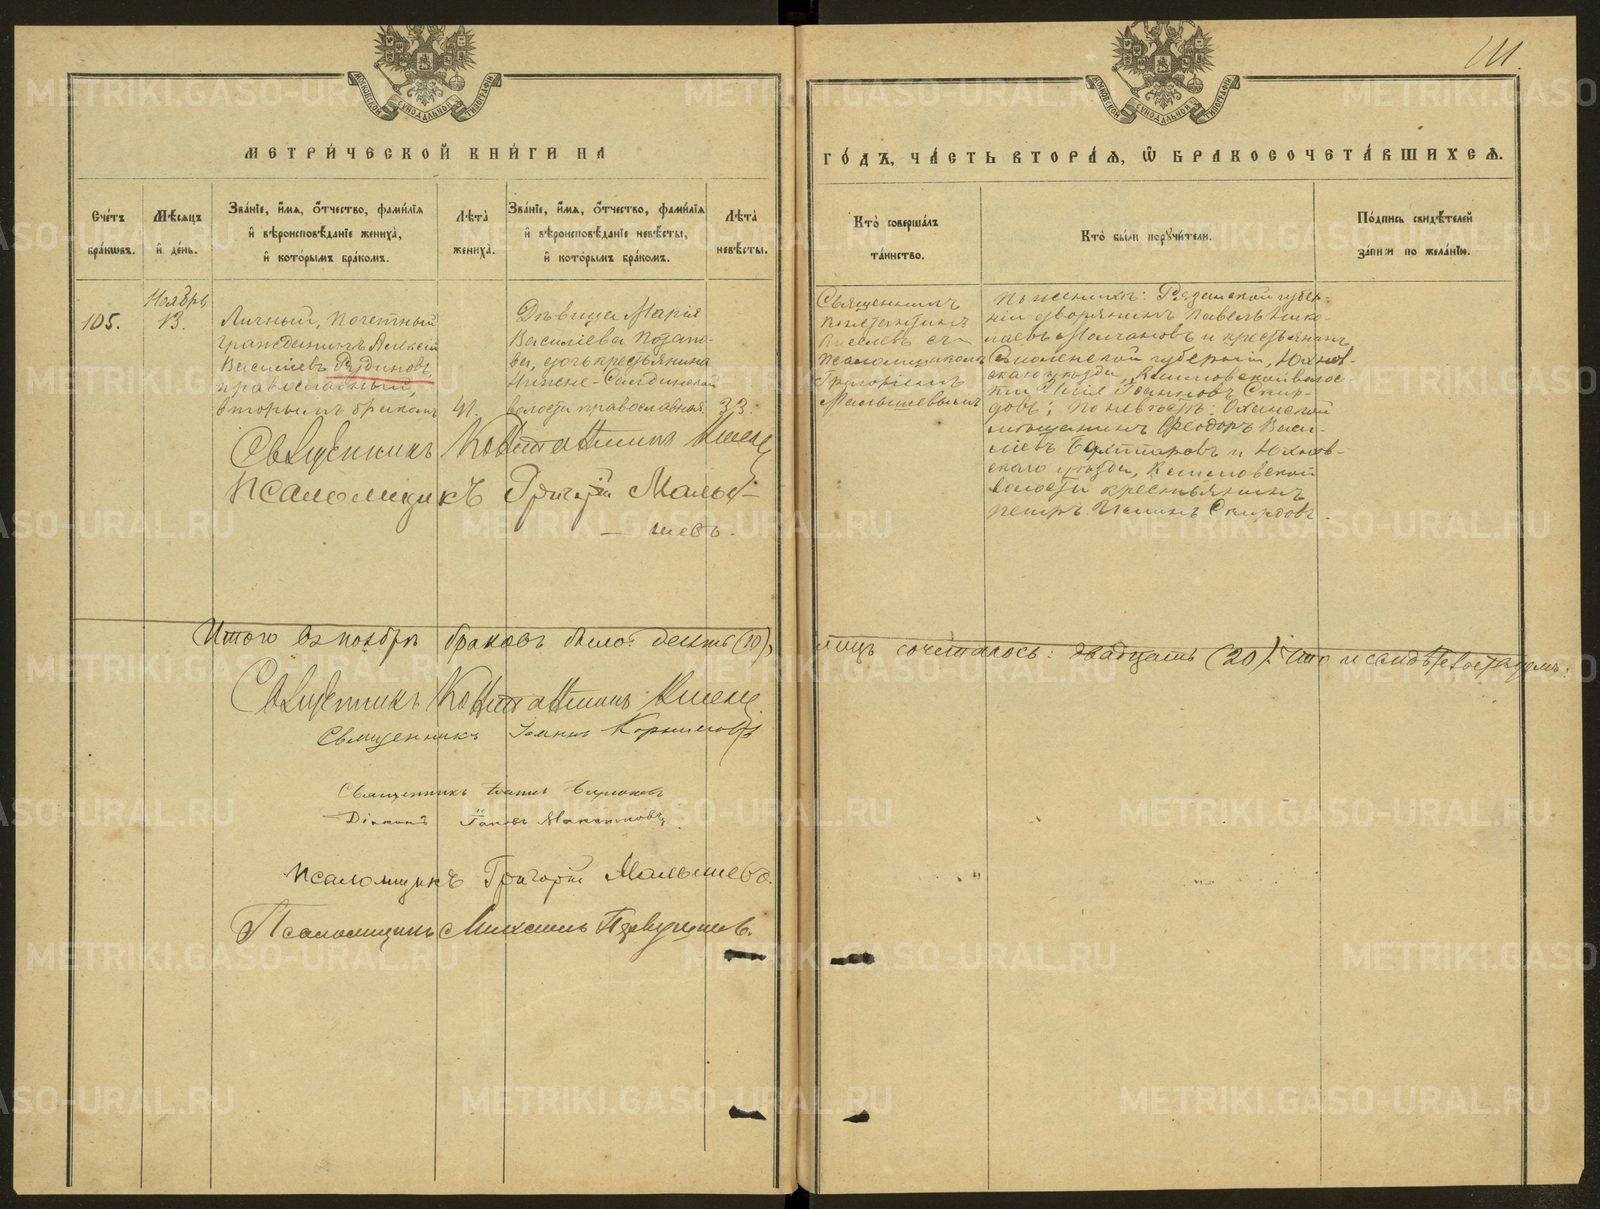 111.
МЕТРИЧЕСКОЙ КНИГИ НА
ГОДЪ, ЧАСТЬ ВТОРАЯ, Ѿ БРАКОСОЧЕТАВШИХСЯ.
Счетъ браковъ.
Мѣсяцъ и день.
Званіе, имя, отчество, фамилія
и вѣроисповѣданіе жениха,
и которымъ бракомъ.
Лѣта жениха.
Званіе, имя, отчество, фамилія
и вѣроисповѣданіе невѣсты,
и которымъ бракомъ.
Лѣта невѣсты.
Кто совершалъ
таинство.
Кто были поручители.
Подпись свидѣтелей
записи по желанію.
105.
Ноябрь
13.
Личный, почетный
гражданинъ Алексій
Василіевъ Рудиновъ,
православный,
вторымъ бракомъ
41.
Дѣвица Марія
Василіева Потапо-
ва, дочь крестьянина
Нижне-Салдинской
волости православная.
33.
Священникъ
Константинъ
съ
псаломщикомъ
Григоріемъ
Малышевымъ
по женихѣ: Рязанской губер-
ніи дворянинъ Павелъ Нико-
лаевъ Молчановъ и крестьянинъ
Смоленской губерніи, Юхнов-
скаго уѣзда, волос-
ти Іоанновъ Скир-
довъ; по невѣстѣ: Оханскій
мѣщанинъ Ѳеодоръ Васи-
ліевъ и Юхнов-
скаго уѣзда,
волости крестьянинъ
Петръ Скирдовъ.
Священникъ Константинъ
Псаломщикъ Григорій Малы-
шевъ.
Итого въ ноябрѣ браковъ было: десять (10),
лицъ сочеталось: двадцать (20). Что и свидѣтельствуемъ:
Священникъ Константинъ
Священникъ Іоаннъ
Священникъ Іоаннъ
Діаконъ
Псаломщикъ Григорій Малышевъ.
Псаломщикъ Михаилъ
METRIKI.GASO-URAL.RU